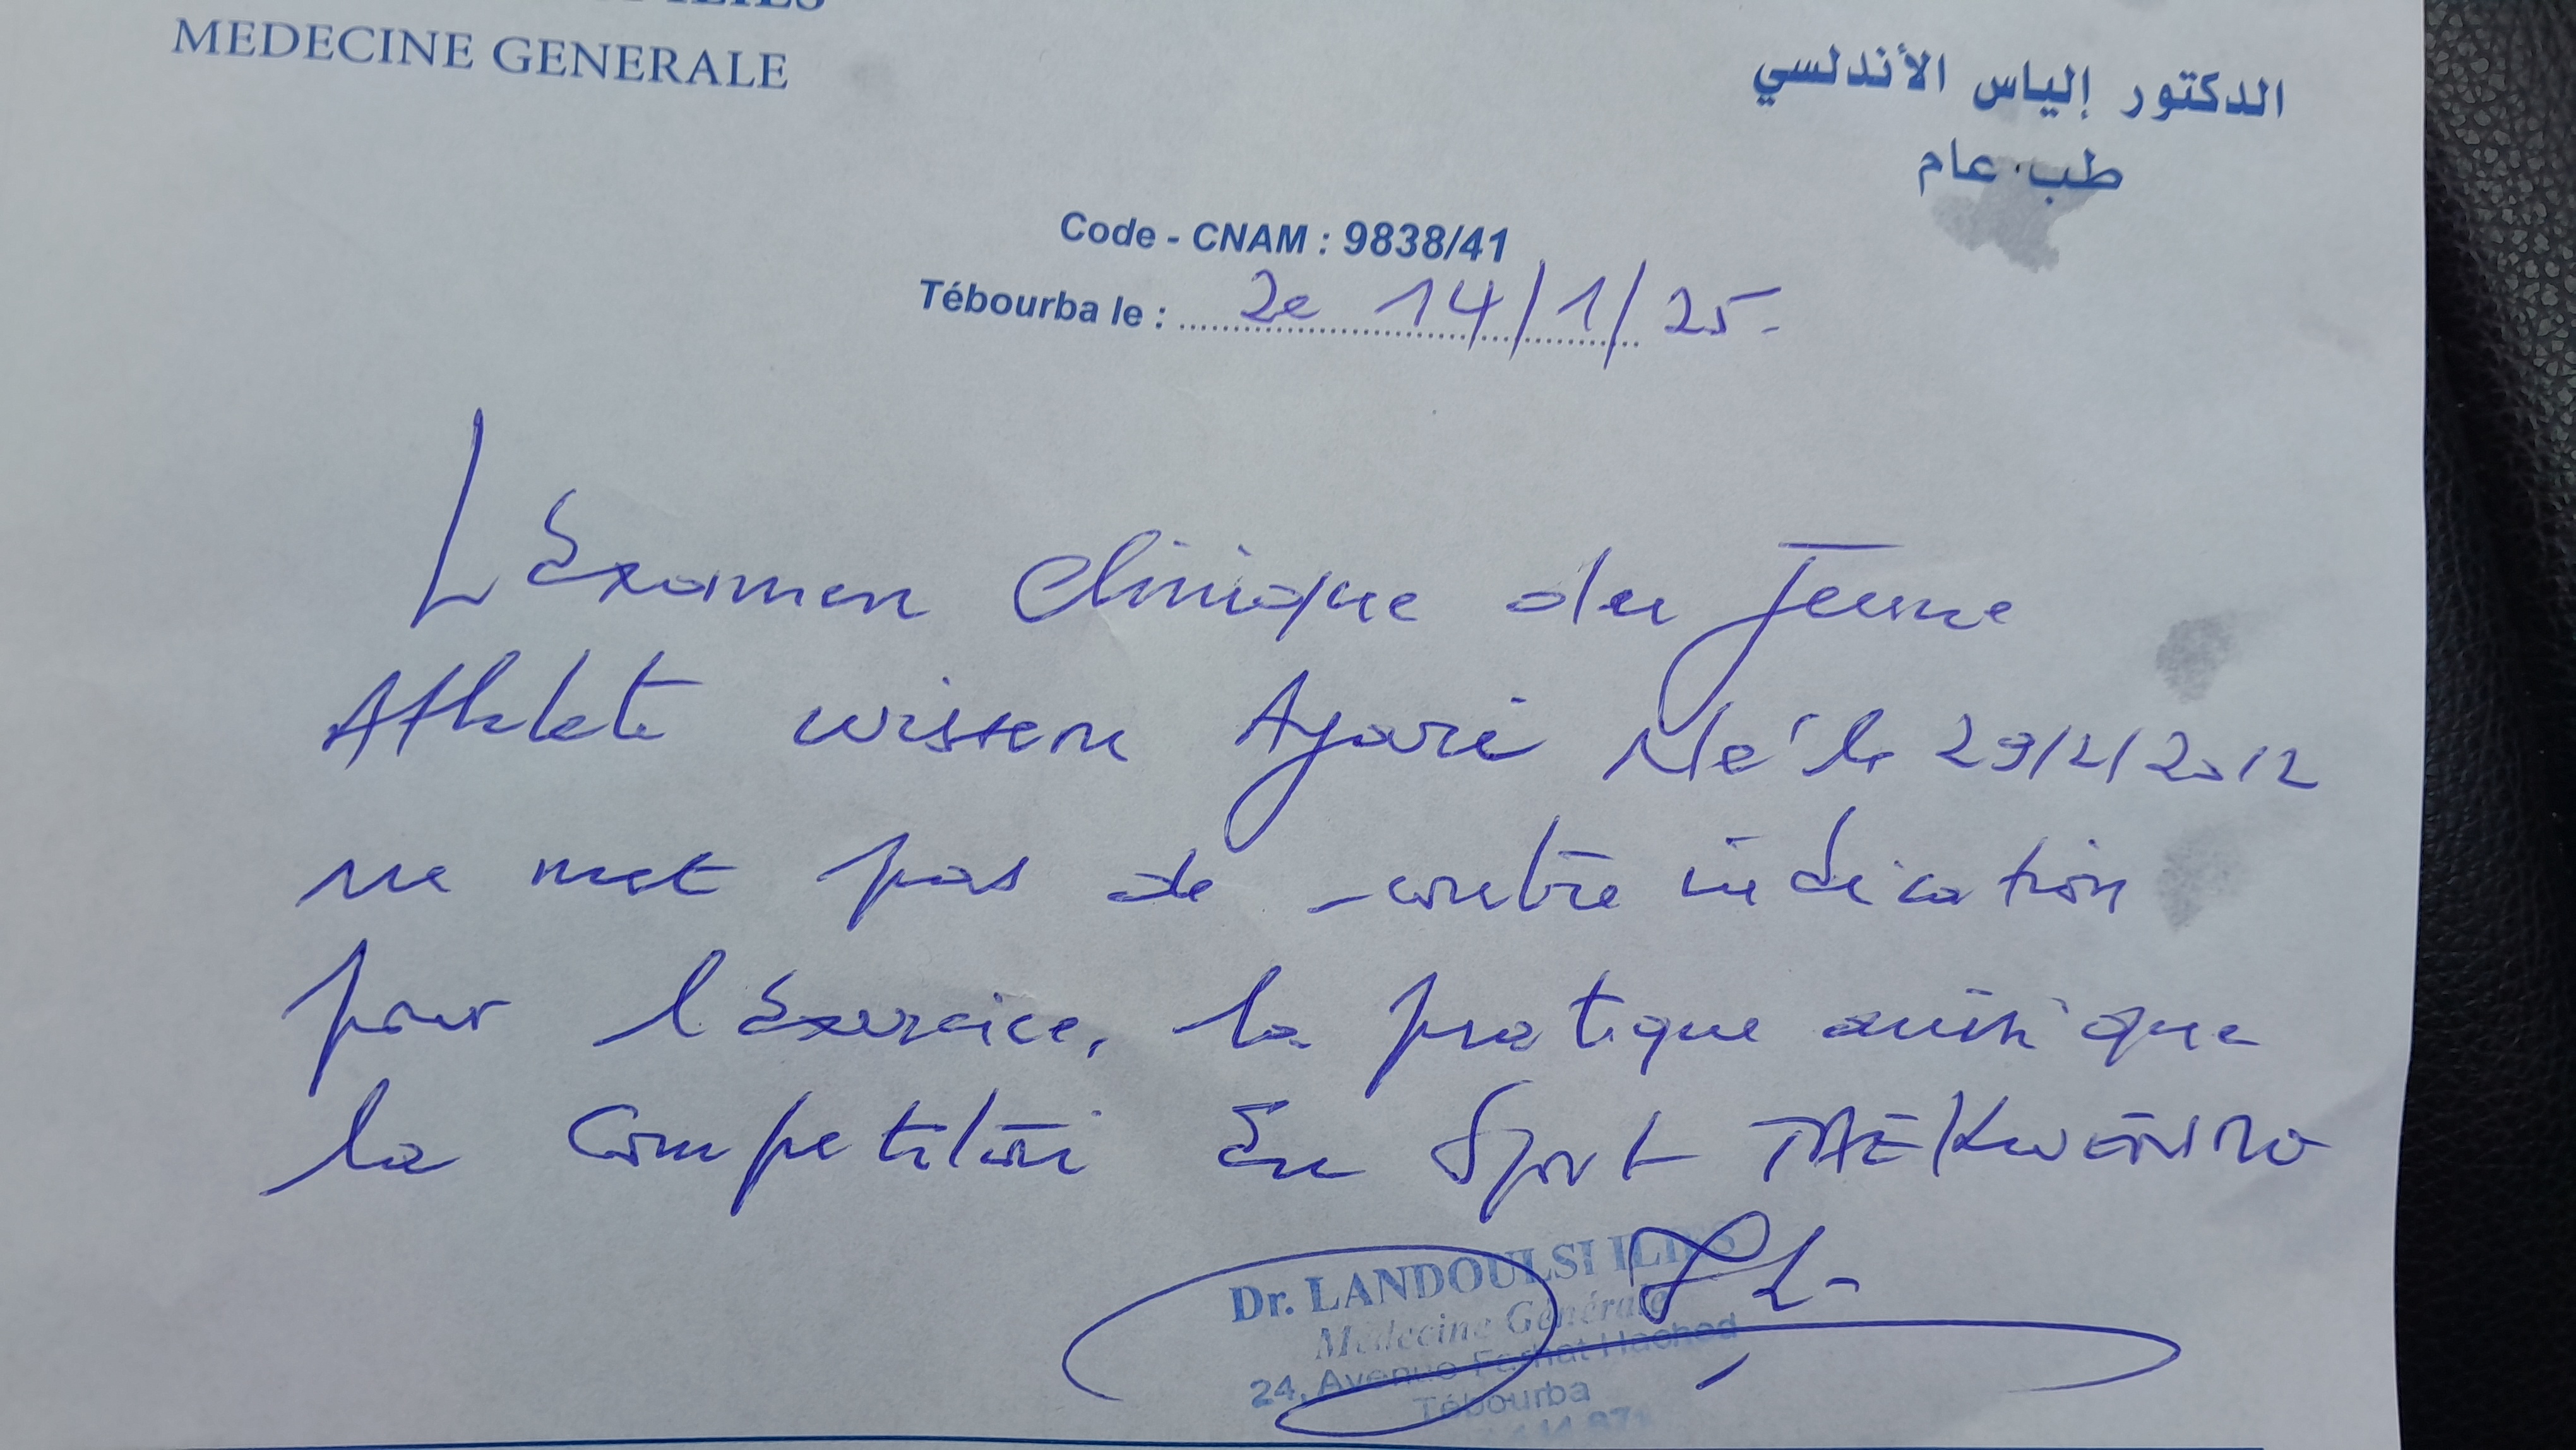 MEDECINE GENERALE
الدكتور إلياس الأندلسي
طب عام
Code - CNAM : 9838/41
Tébourba le : 2e 14/1/25.
L'Examen Clinique du Jeune
Athlete wissem Ayari Né le 29/2/2012
ne met pas de contre indication
pour l'Exercice, la pratique ainsi que
la Competition En Sport TAEKWENDO
Dr. LANDOULSI ILIES
Médecine Générale
24, Avenue Farhat Hached
Tébourba